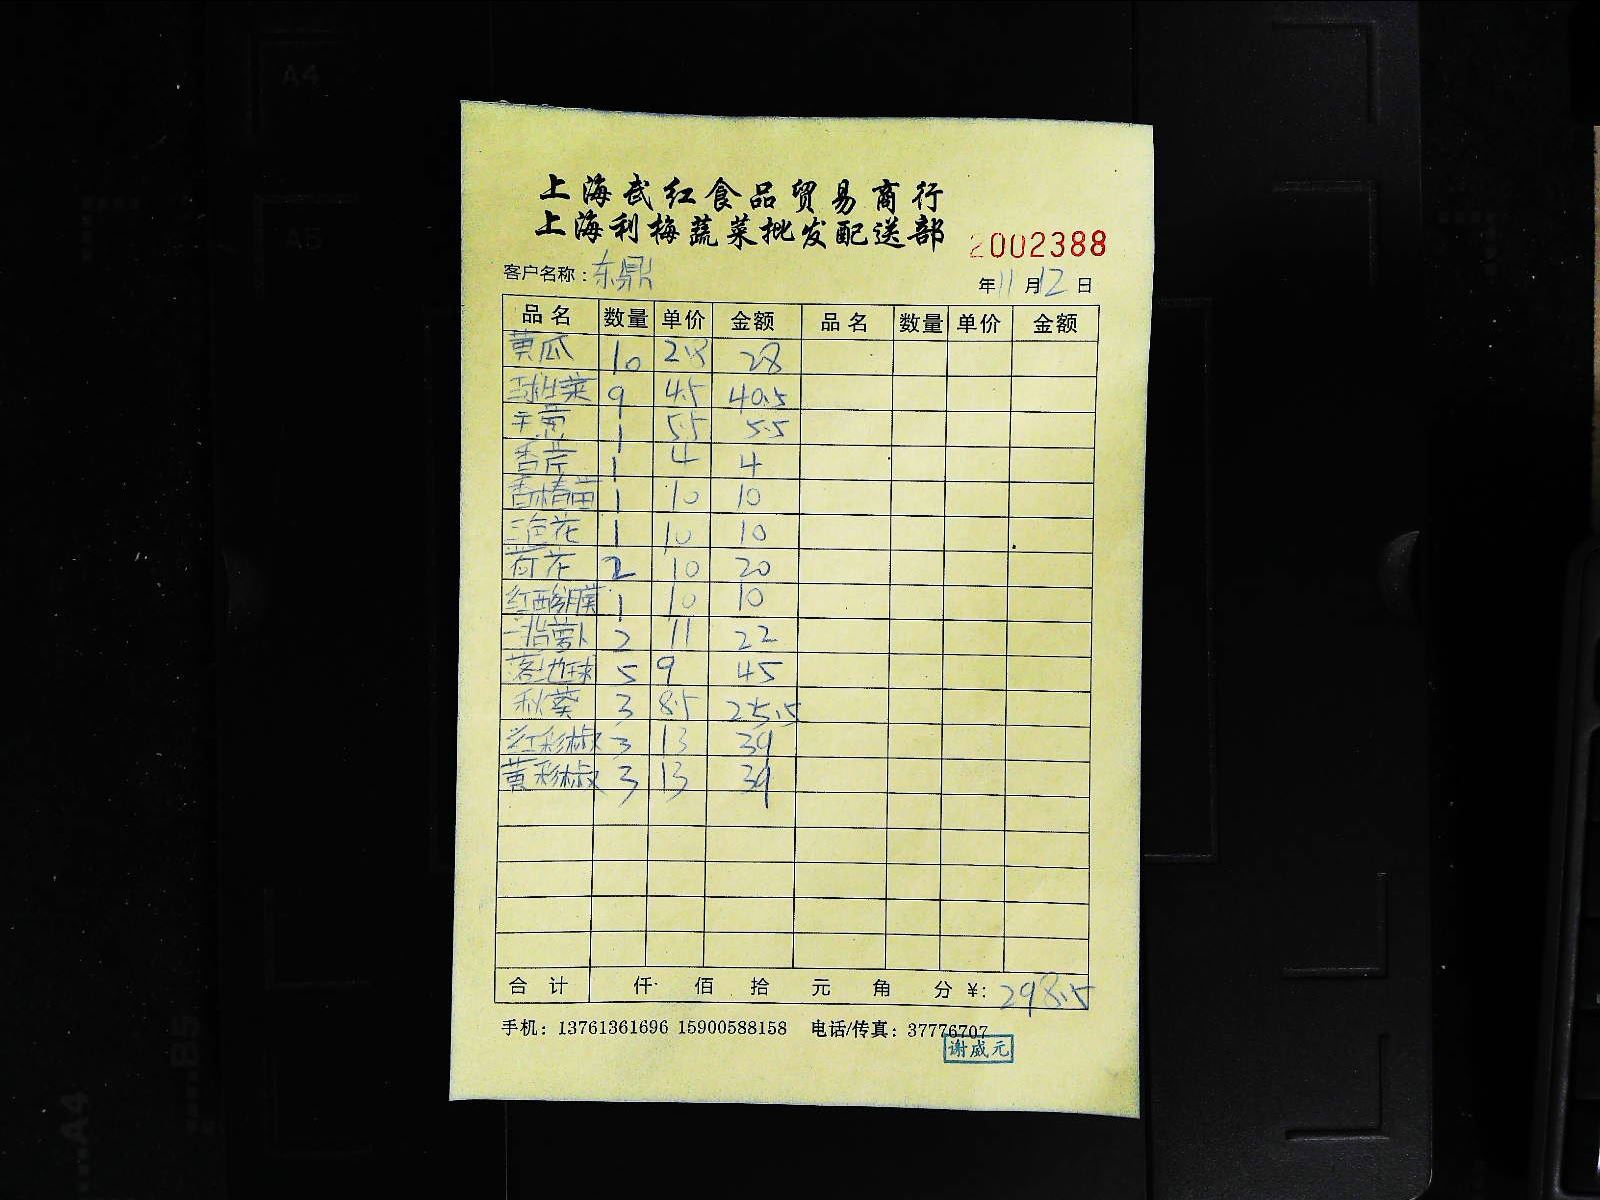 上海武红食品贸易商行
上海利梅蔬菜批发配送部
2002388
客户名称：东鼎 年11月12日
品名 数量 单价 金额 品名 数量 单价 金额
黄瓜 10 2.8 28
球生菜 9 4.5 40.5
1 5.5 5.5
香芹 1 4 4
香椿苗 1 10 10
三色花 1 10 10
荷花 2 10 20
红酸膜 1 10 10
手指萝卜 2 11 22
落地球 5 9 45
秋葵 3 8.5 25.5
红彩椒 3 13 39
黄彩椒 3 13 39
合计 仟 佰 拾 元 角 分 ¥: 298.5
手机：13761361696 15900588158 电话/传真：37776707
谢威元
A4
A5
B5
A4